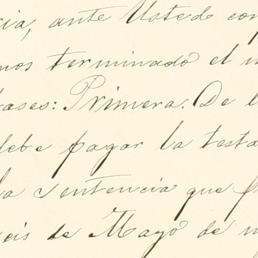 cia, ante Usted com
mos terminado el
bases: Primera. De l
debe pagar la testa
la sentencia que
seis de Mayo de m